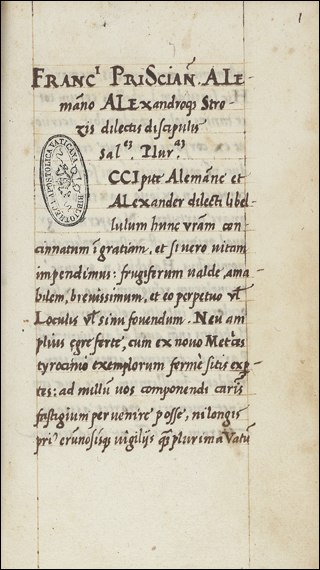 1
FRANC^I PRISCIAÑ. ALE-
máno ALExandroqȝ Stro-
zis dilectis discipulis
sal^és. Plur^és
BIBLIOTECA APOSTOLICA VATICANA
CCIpite Alemáne et
ALExander dilecti libel-
lulum hunc vr̃am con
cinnatum ĩ gratiam. et si vero vitam
impendimus: frugiferum valde, ama
bilem, brevissimum, et eo perpetuo vl̃
Loculis vl̃ sinu fovendum. Neu am
plius ęgre ferte, cum ex novo
tyrocinio exemplorum fermè sitis exp̱
tes: ad millũ vos componendi carĩs
fastigium pervenire posse, ni longis
pri^9 ęrũnosisqȝ vigilijs plurima Vatũ